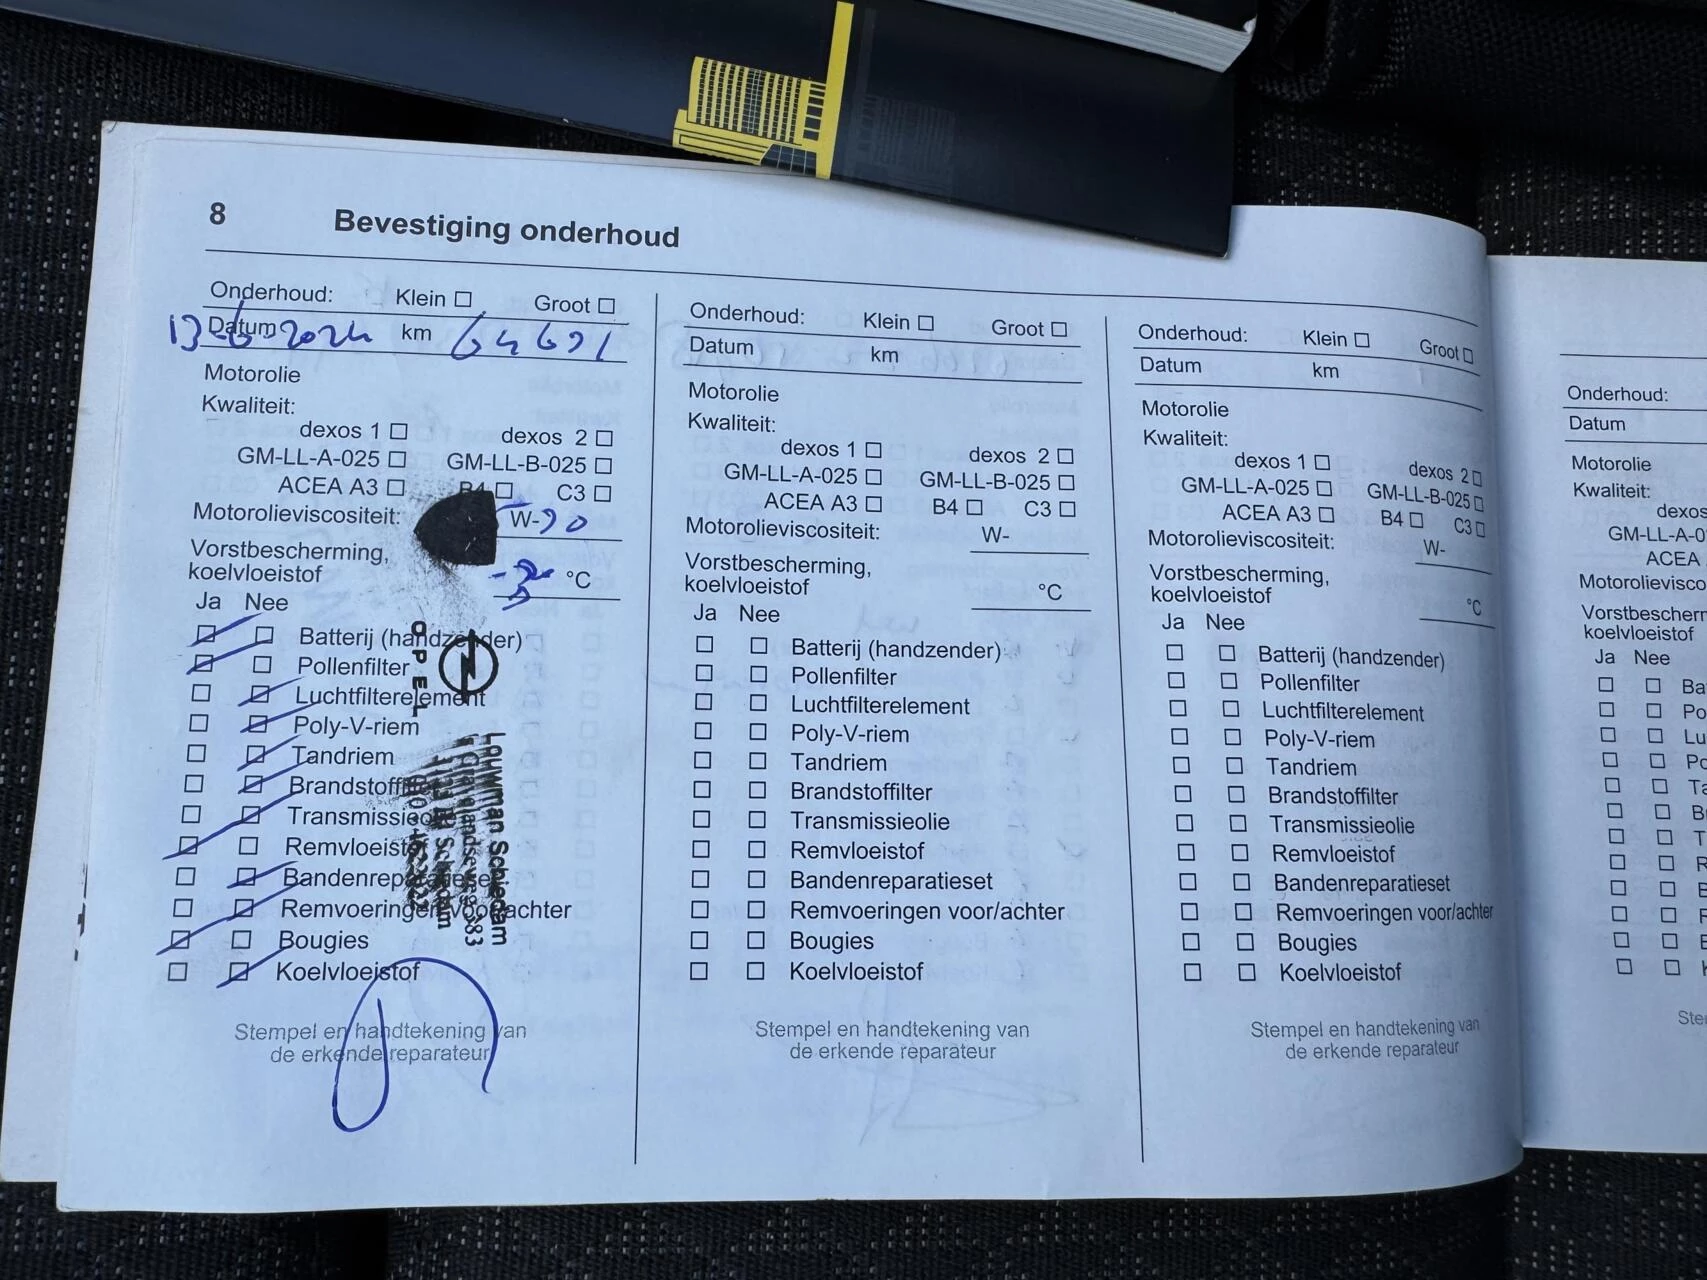 8 Bevestiging onderhoud
Onderhoud: Klein Groot
Datum 13-6-2024 km 64691
Motorolie
Kwaliteit:
dexos 1 dexos 2
GM-LL-A-025 GM-LL-B-025
ACEA A3 B4 C3
Motorolieviscositeit: W-
Vorstbescherming,
koelvloeistof °C
Ja Nee
Batterij (handzender)
Pollenfilter
Luchtfilterelement
Poly-V-riem
Tandriem
Brandstoffilter
Transmissieolie
Remvloeistof
Bandenreparatieset
Remvoeringen voor/achter
Bougies
Koelvloeistof
Stempel en handtekening van
de erkende reparateur
OPEL
Louwman Schiedam
Onderhoud: Klein Groot
Datum km
Motorolie
Kwaliteit:
dexos 1 dexos 2
GM-LL-A-025 GM-LL-B-025
ACEA A3 B4 C3
Motorolieviscositeit: W-
Vorstbescherming,
koelvloeistof °C
Ja Nee
Batterij (handzender)
Pollenfilter
Luchtfilterelement
Poly-V-riem
Tandriem
Brandstoffilter
Transmissieolie
Remvloeistof
Bandenreparatieset
Remvoeringen voor/achter
Bougies
Koelvloeistof
Stempel en handtekening van
de erkende reparateur
Onderhoud: Klein Groot
Datum km
Motorolie
Kwaliteit:
dexos 1 dexos 2
GM-LL-A-025 GM-LL-B-025
ACEA A3 B4 C3
Motorolieviscositeit: W-
Vorstbescherming,
koelvloeistof °C
Ja Nee
Batterij (handzender)
Pollenfilter
Luchtfilterelement
Poly-V-riem
Tandriem
Brandstoffilter
Transmissieolie
Remvloeistof
Bandenreparatieset
Remvoeringen voor/achter
Bougies
Koelvloeistof
Stempel en handtekening van
de erkende reparateur
Onderhoud:
Datum
Motorolie
Kwaliteit:
dexos
GM-LL-A-0
ACEA
Motorolievisco
Vorstbescherm
koelvloeistof
Ja Nee
Ba
Po
Lu
Po
Ta
B
T
R
E
F
E
K
Ste